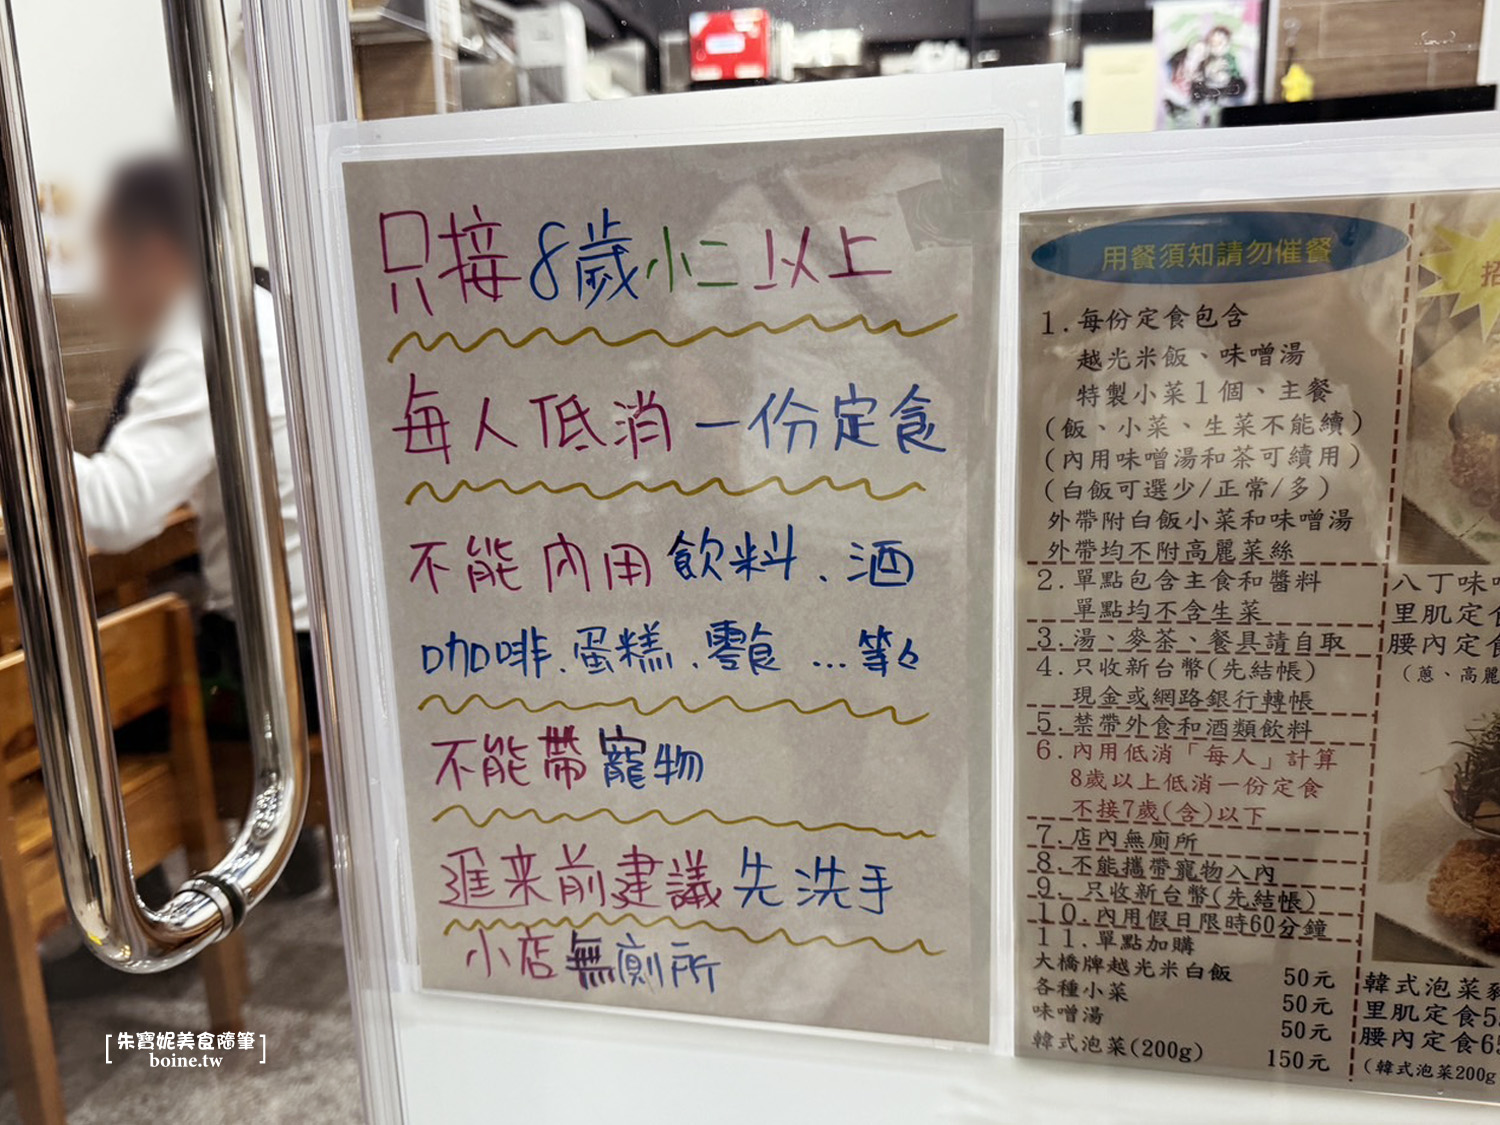 只接8歲小二以上
每人低消一份定食
不能內用飲料、酒
咖啡、蛋糕、零食...等々
不能帶寵物
進来前建議先洗手
小店無廁所
用餐須知請勿催餐
1.每份定食包含
越光米飯、味噌湯
特製小菜1個、主餐
(飯、小菜、生菜不能續)
(內用味噌湯和茶可續用)
(白飯可選少/正常/多)
外帶附白飯小菜和味噌湯
外帶均不附高麗菜絲
2.單點包含主食和醬料
單點均不含生菜
3.湯、麥茶、餐具請自取
4.只收新台幣(先結帳)
現金或網路銀行轉帳
5.禁帶外食和酒類飲料
6.內用低消「每人」計算
8歲以上低消一份定食
不接7歲(含)以下
7.店內無廁所
8.不能攜帶寵物入內
9. 只收新台幣(先結帳)
10.內用假日限時60分鐘
11.單點加購
大橋牌越光米白飯 50元
各種小菜 50元
味噌湯 50元
韓式泡菜(200g) 150元
招
八丁味
里肌定食
腰內定食
(蔥、高麗
韓式泡菜
里肌定食5
腰內定食6
(韓式泡菜200g
朱寶妮美食隨筆
boine.tw